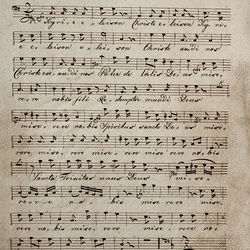 Kyri e e, leison Christe e, leison Ky ri,
e e, leison e, lei, son Christe audi nos
Christe ex, audi nos Pater de Caelis De, us mise,
re, re nobis fili Re, demptor mundi Deus
mise, rere no, bis Spiritus Sancte De, us mise,
rere no, bis mise rere mise rere no, bis
Sancta Trinitas unus Deus mi, se,
re, r e no, bis mise rere mise,
rere no, bis mise, rere mise, rere
no, bis mise rere mise rere no, bis